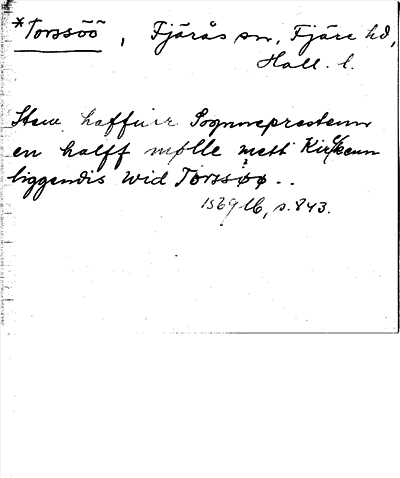 *Torssöö, Fjärås sn, Fjäre hd,
Hall. l.
Item haffuer Sogneprestenn
en halff mølle mett Kircken
liggendis wid Torssøø..
1569 lb, s. 843.